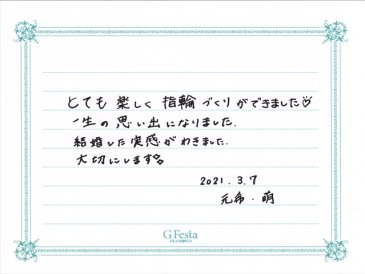 とても楽しく指輪づくりができました♡
一生の思い出になりました.
結婚した実感がわきました.
大切にします。
2021.3.7
元希・萌
G.Festa